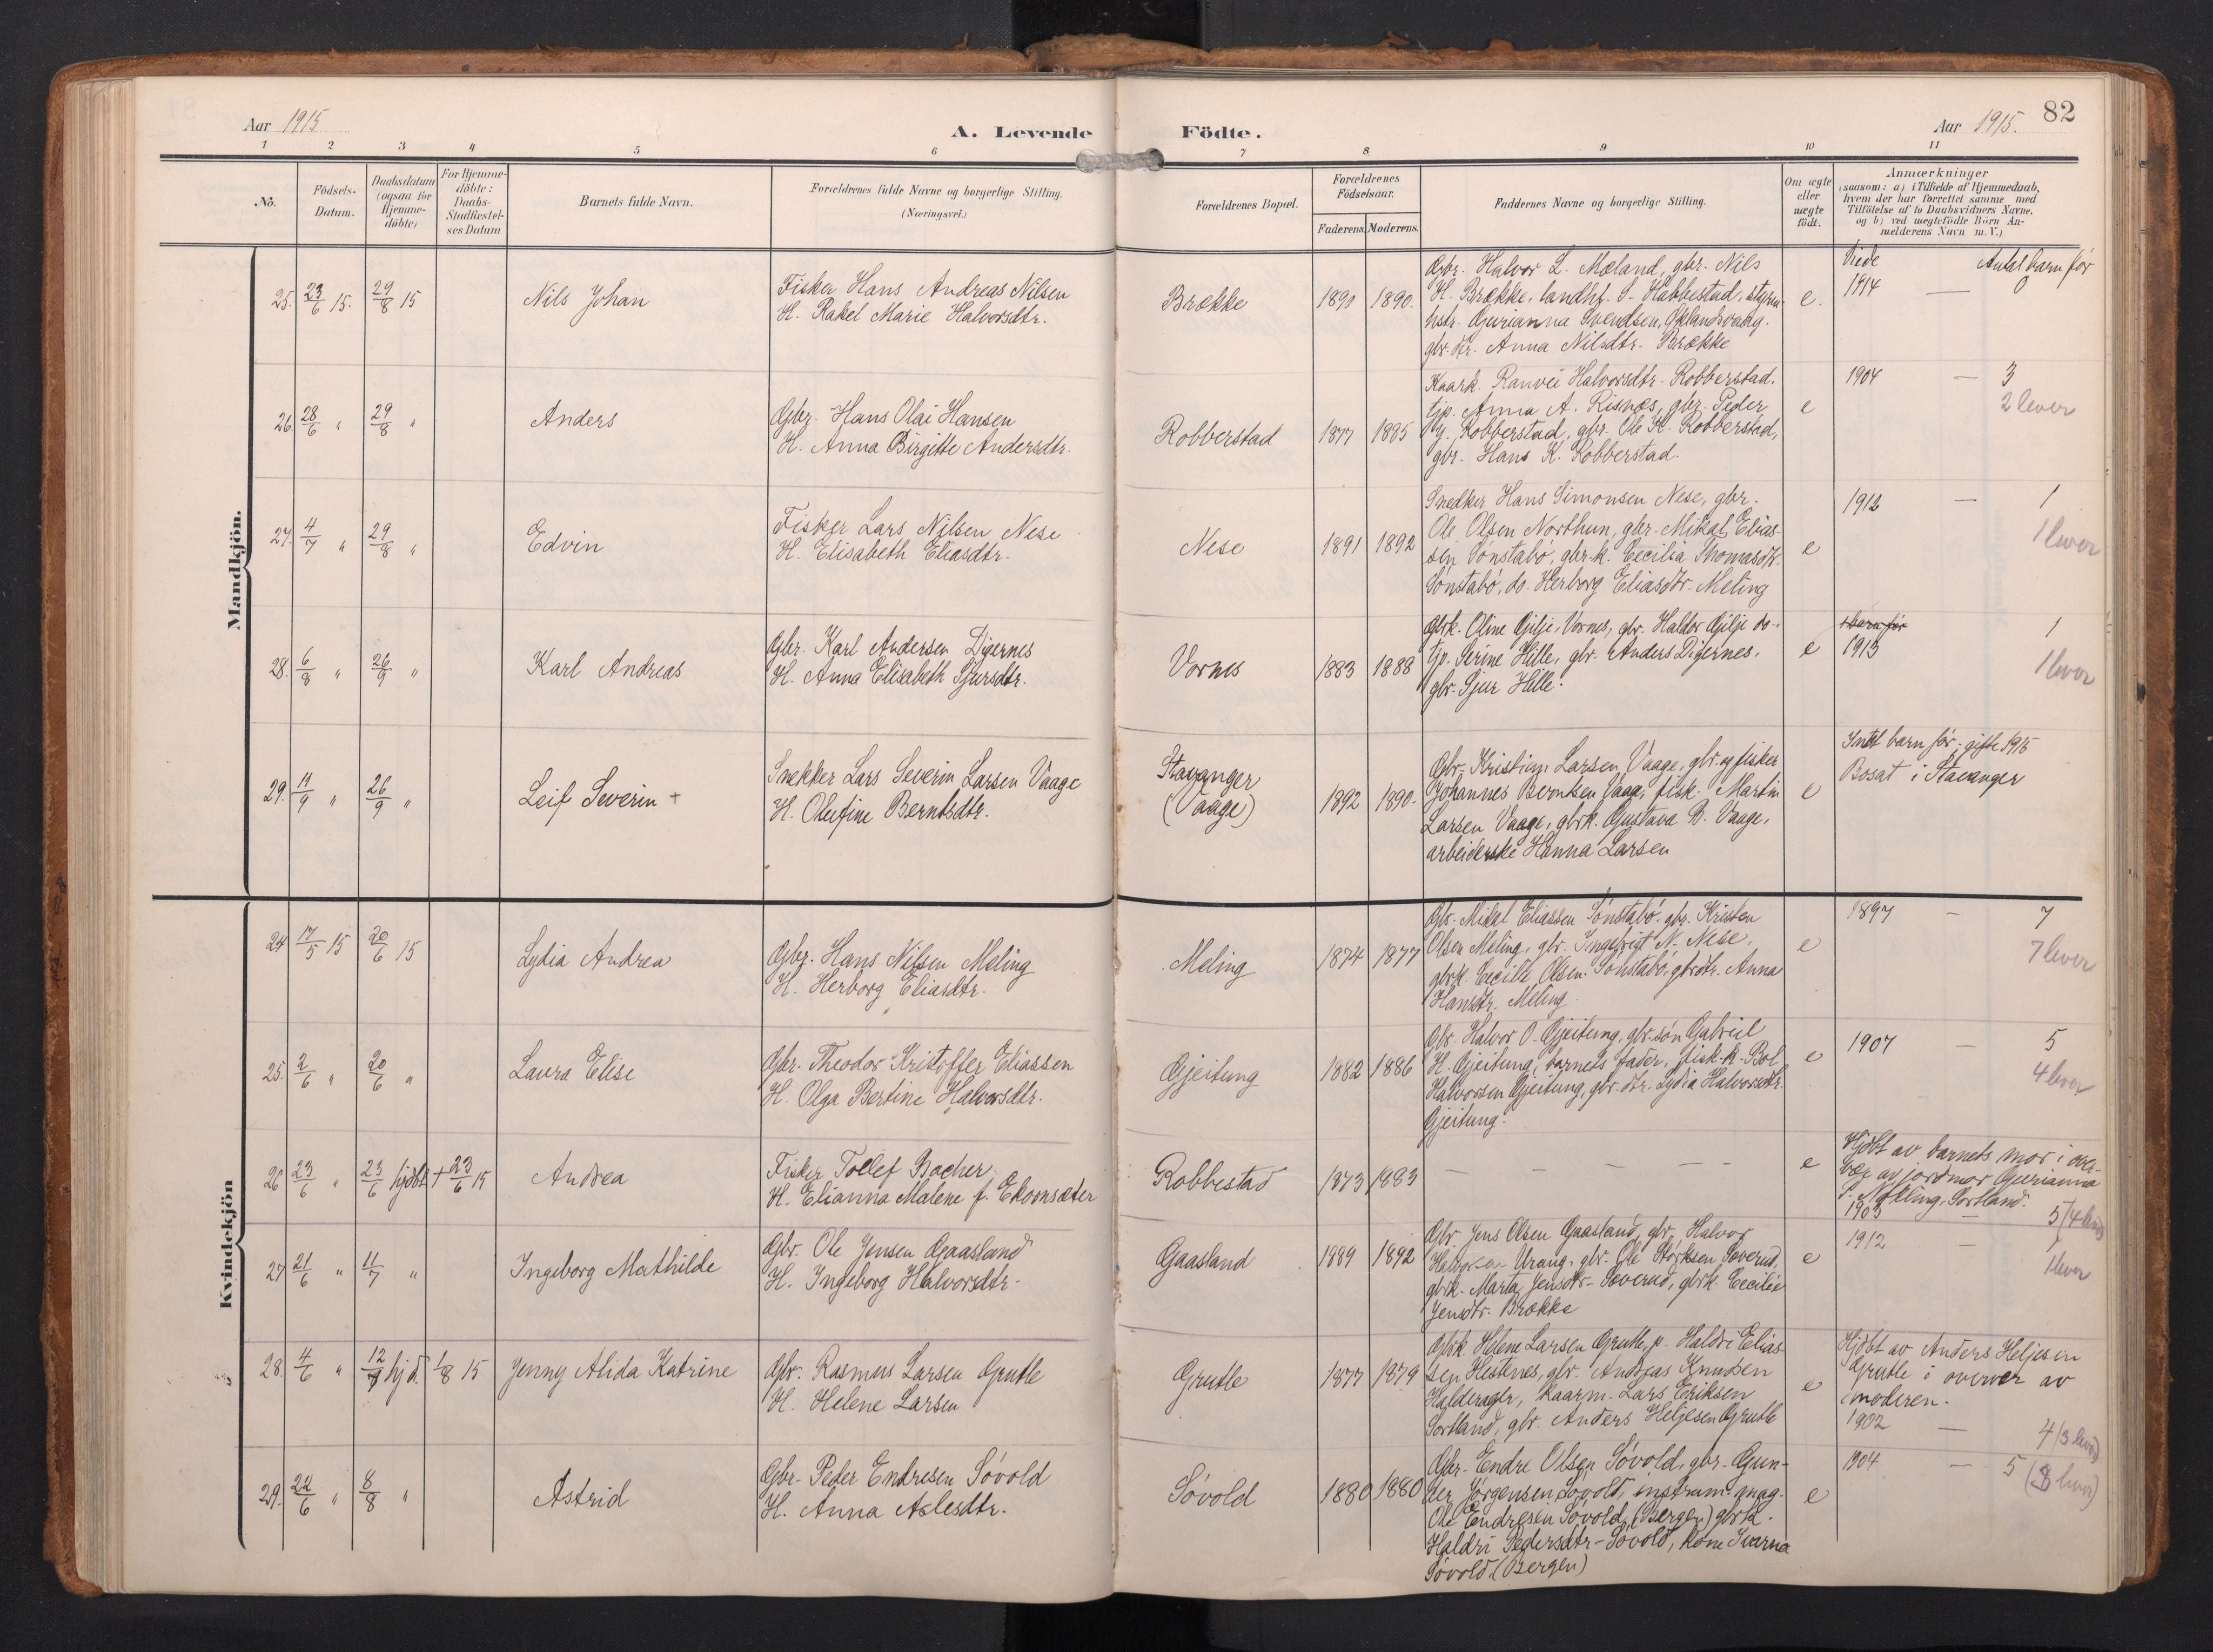 Aar 1915
A. Levende
Födte.
Aar 1915.
82
1 2 3 4 5 6 7 8 9 10 11
No.
Födsels-
Datum.
Daabsdatum
(ogsaa for
Hjemme-
döbte)
For Hjemme-
döbte:
Daabs-
Stadfæstel-
ses Datum
Barnets fulde Navn.
Forældrenes fulde Navne og borgerlige Stilling.
(Næringsvei.)
Forældrenes Bopæl.
Forældrenes
Födselsaar.
Faderens. Moderens.
Faddernes Navne og borgerlige Stilling.
Om ægte
eller
uægte
födt.
Anmærkninger
(saasom: a) i Tilfælde af Hjemmedaab,
hvem der har forrettet samme med
Tilföielse af to Daabsvidners Navne,
og b) ved uegtefödte Börn An-
melderens Navn m. V.)
Mandkjön.
25. 23/6 15. 29/8 15
Nils Johan
Fisker Hans Andreas Nilsen
H. Rakel Marie Halvorsdtr.
Brække
1891 1890.
Gbr. Halvor L. Mæland, gbr. Nils
H. Brække, landhl. S. Habbestad, styrm.
hstr. Gurianna Svendsen, Øklandsvaag.
gbr. dtr. Anna Nilsdtr. Brække
e.
Viede
1914 —
Antal barn før
26. 28/6 " 29/8 "
Anders
Gbr. Hans Olai Hansen
H. Anna Birgitte Andersdtr.
Robberstad
1877 1885
Kaark. Ranvei Halvorsdtr. Robberstad.
tjp. Anna A. Risnæs, gbr. Peder
G. Robberstad, gbr. Ole K. Robberstad,
gbr. Hans K. Robberstad.
e
1904 — 3
2 lever
27. 4/7 " 29/8 "
Edvin
Fisker Lars Nilsen Nese
H. Elisabeth Eliasdtr.
Nese
1891 1892
Snedker Hans Simonsen Nese, gbr.
Ole Olsen Northun, gbr. Mikal Elias-
sen Sønstabø, gbr.k. Cecilia Thomasdtr.
Sønstabø, do. Herborg Eliasdtr. Meling
e
1912 — 1
1 lever
28. 6/8 " 26/9 "
Karl Andreas
Gbr. Karl Andersen Digernes
H. Anna Elisabeth Sjursdtr.
Vornes
1883 1888
Gbrk. Oline Gilje, Vornes, gbr. Haldor Gilje do.
tjp. Serine Hille, gbr. Anders Digernes,
gbr. Sjur Hille.
e
1 barn før
1913
1
1 lever
29. 11/9 " 26/9 "
Leif Severin +
Snekker Lars Severin Larsen Vaage
H. Oleifine Berntsdtr.
Stavanger
(Vaage)
1892 1890.
Gbr. Kristian Larsen Vaage, gbr. og fisker
Johannes Berntsen Vaage, fisk. Martin
Larsen Vaage, gbrk. Gustava B. Vaage,
arbeiderske Hanna Larsen
e
Intet barn før, gifte 1915
Bosat i Stavanger
Kvindekjön
24 17/5 15 20/6 15
Lydia Andrea
Gbr. Hans Nilsen Meling
H. Herborg Eliasdtr.
Meling
1874 1877
Gbr. Mikal Eliassen Sønstabø. gbr. Kristen
Olsen Meling, gbr. Ingebrigt N. Nese,
gbrk. Cecilie Olsen Sønstabø. gbrdtr. Anna
Hansdtr. Meling
e
1897 — 7
7 lever
25. 2/6 " 20/6 "
Laura Elise
Gbr. Theodor Kristoffer Eliassen
H. Olga Bertine Halvorsdtr.
Gjeitung
1882 1886
Gbr. Halvor O. Gjeitung, gbr.søn Gabriel
H. Gjeitung, barnets fader, fisk.k. Bol
Halvorsen Gjeitung, gbr. dtr. Lydia Halvorsdtr.
Gjeitung.
e
1907 — 5
4 lever
26 23/6 " 23/6 hjdbt + 23/6 15
Andrea
Fisker Tollef Bacher
H. Elianna Malene f. Ekornsæter
Robbestad
1873 1883
— — — — —
e
Hjdbt av barnets mor i over-
vær av jordmor Gurianna
P. Nøkling, Sortland.
1903 — 5 (4 lever)
27 21/6 " 11/7 "
Ingeborg Mathilde
Gbr. Ole Jensen Gaasland
H. Ingeborg Halvorsdtr.
Gaasland
1889 1892
Gbr. Jens Olsen Gaasland, gbr. Halvor
Halvorsen Urang, gbr. Ole Størksen Soverud,
gbrk. Marta Jensdtr. Soverud, gbrk. Cecilie
Jensdtr. Brække
e
1912 — 1
1 lever
28. 4/6 " 12/7 hjd. 1/8 15
Jenny Alida Katrine
Gbr. Rasmus Larsen Grutle
H. Helene Larsen
Grutle
1877 1879
Gbrk. Helene Larsen Grutle, p. Haldri Elias-
sen Hestnes, gbr. Andreas Knudsen
Halderager, kaarm. Lars Eriksen
Sortland, gbr. Anders Heljesen Grutle
e
Hjdbt av Anders Heljesen
Grutle i overvær av
moderen.
1902 — 4 (3 lever)
29. 22/6 " 8/8 "
Astrid
Gbr. Peder Endresen Søvold
H. Anna Aslesdtr.
Søvold
1880 1880
Gbr. Endre Olsen Søvold, gbr. Gun-
der Jørgensen Søvold, instrum. mag.
Ole Endresen Søvold (Bergen) gbrk.
Haldri Pedersdtr. Søvold, kone Ivarna
Søvold (Bergen)
e
1904 — 5 (3 lever)